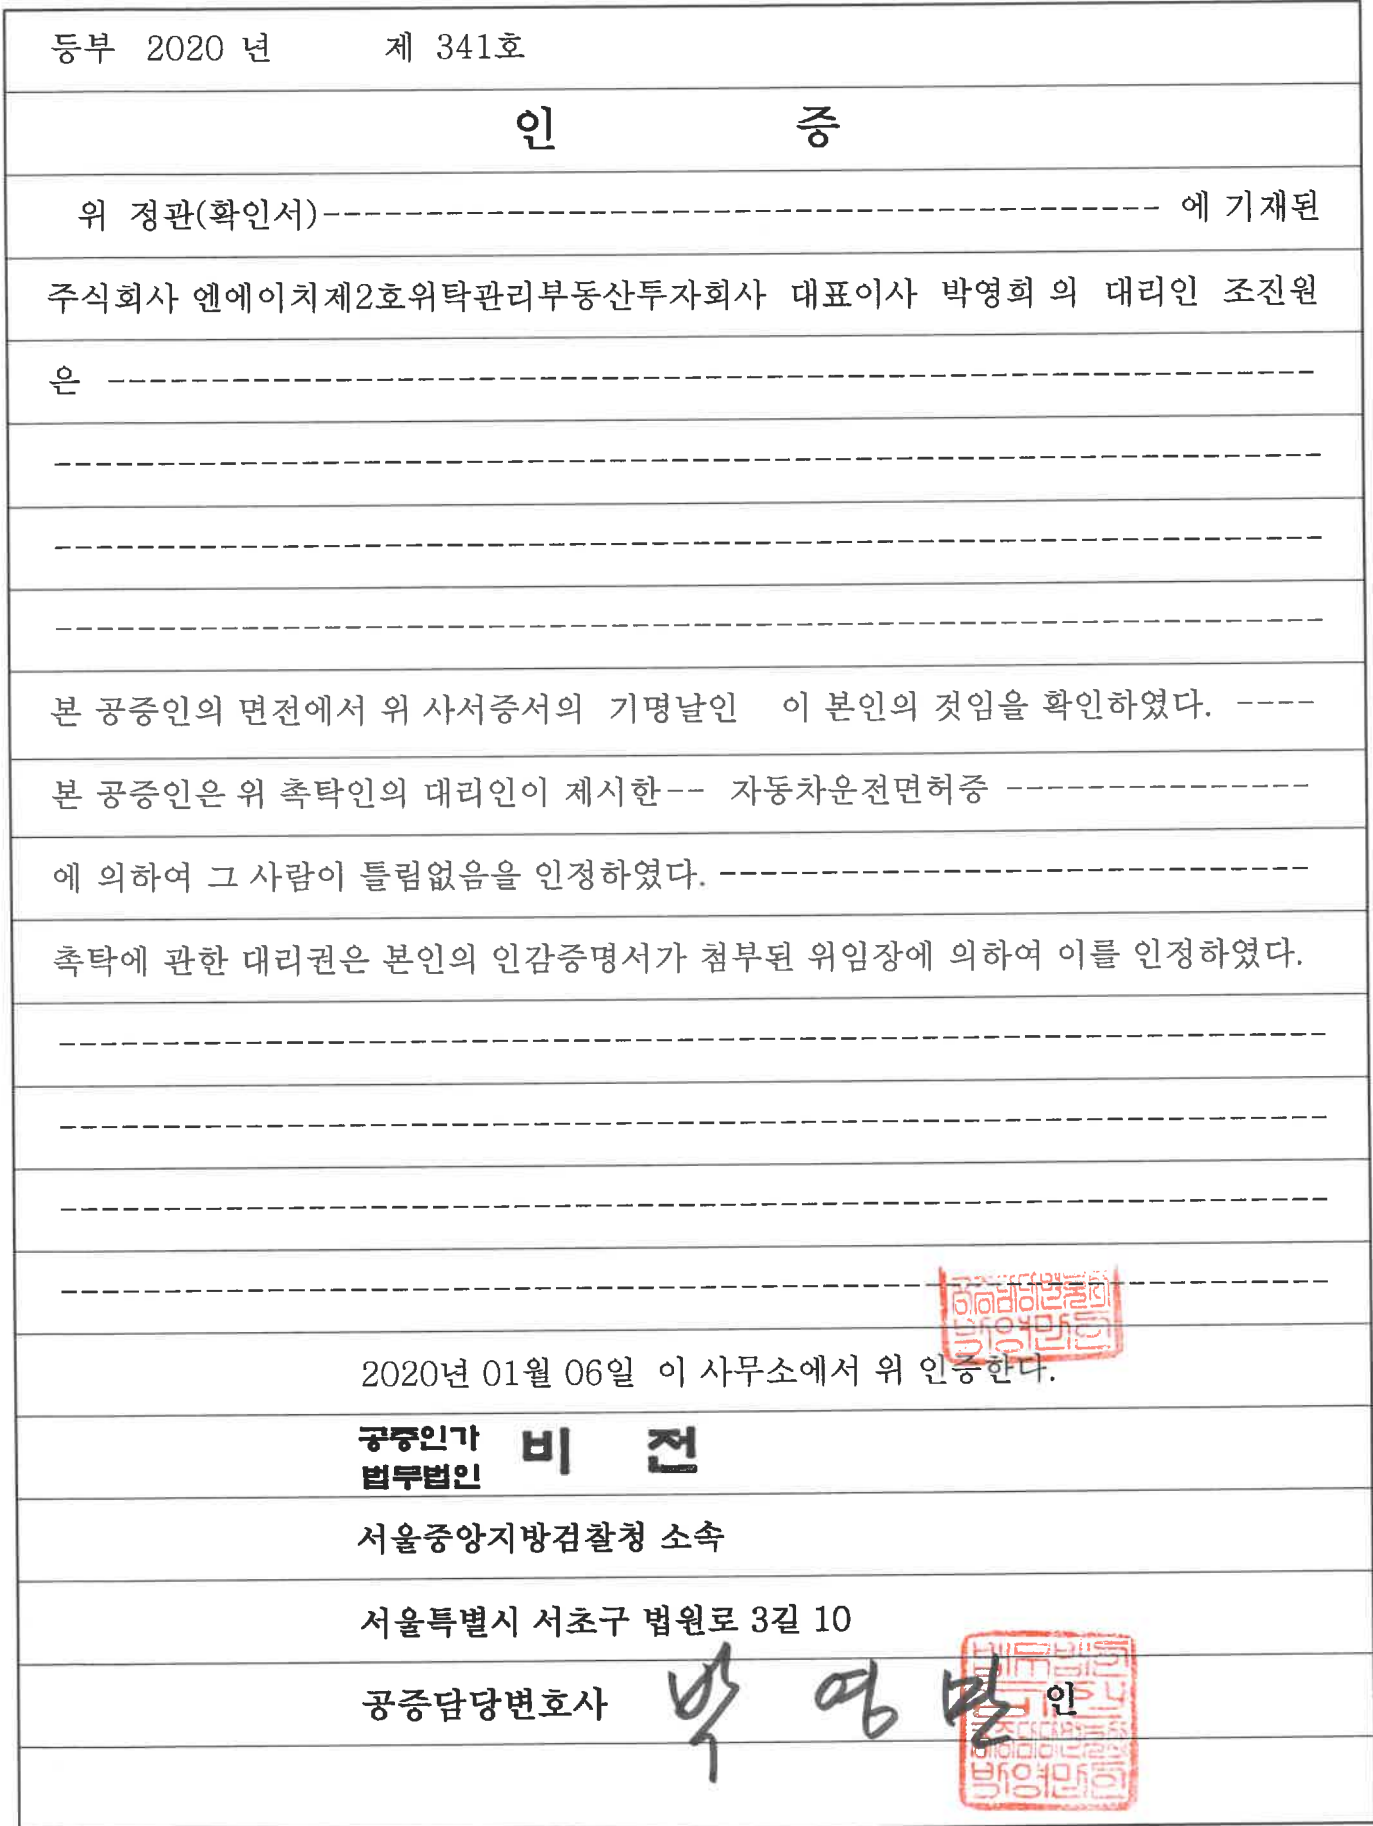 등부 2020 년 제 341호
인 증
위 정관(확인서)----------------------------------------- 에 기재된
주식회사 엔에이치제2호위탁관리부동산투자회사 대표이사 박영희 의 대리인 조진원
은 -----------------------------------------------------------
--------------------------------------------------------------
--------------------------------------------------------------
--------------------------------------------------------------
본 공증인의 면전에서 위 사서증서의 기명날인 이 본인의 것임을 확인하였다. ----
본 공증인은 위 촉탁인의 대리인이 제시한-- 자동차운전면허증 ---------------
에 의하여 그 사람이 틀림없음을 인정하였다. -----------------------------
촉탁에 관한 대리권은 본인의 인감증명서가 첨부된 위임장에 의하여 이를 인정하였다.
--------------------------------------------------------------
--------------------------------------------------------------
--------------------------------------------------------------
--------------------------------------------------------------
공증담당변호사
박영만인
2020년 01월 06일 이 사무소에서 위 인증한다.
공증인가 법무법인 비 전
서울중앙지방검찰청 소속
서울특별시 서초구 법원로 3길 10
공증담당변호사 박 영 만 인
법무법인
공증담당변호사
박영만인